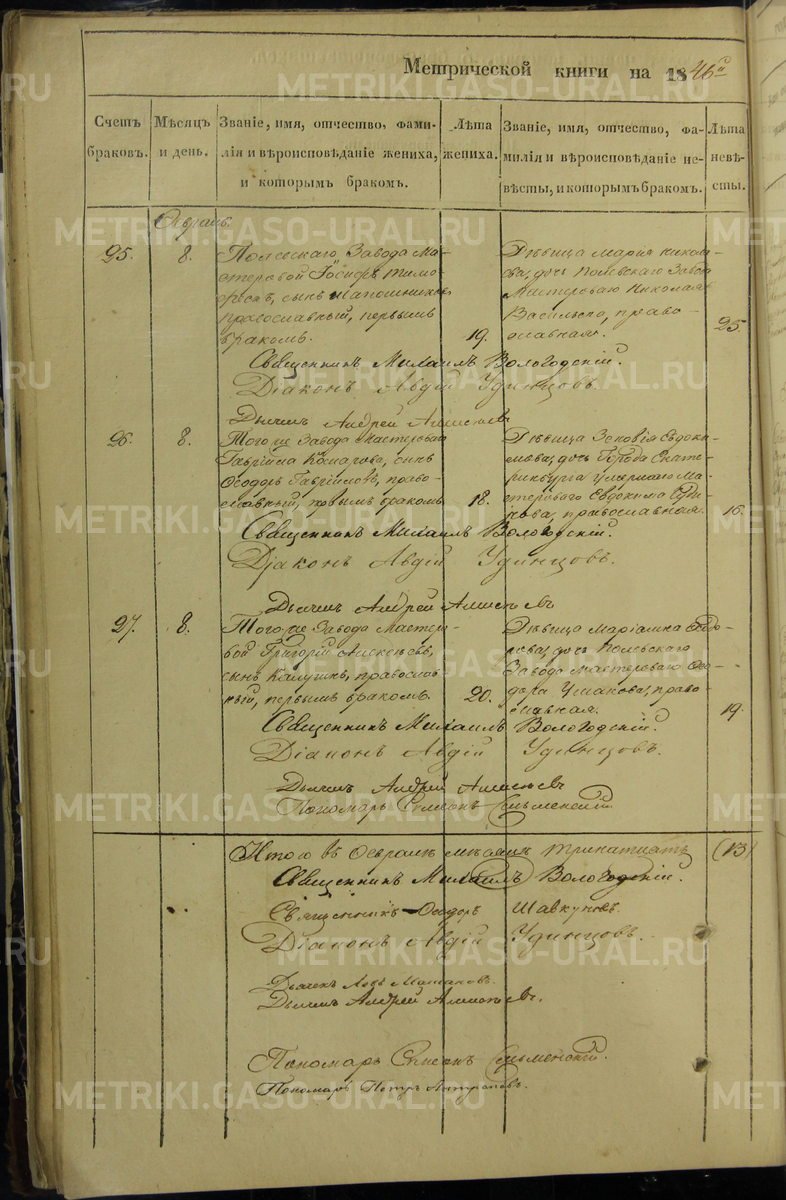 Метрической книги на 1846й
Счетъ браковъ.
Мѣсяцъ и день.
Званіе, имя, отчество, фамилія и вѣроисповѣданіе жениха, и которымъ бракомъ.
Лѣта жениха.
Званіе, имя, отчество, фамилія и вѣроисповѣданіе невѣсты, и которымъ бракомъ.
Лѣта невѣсты.
Февраль.
25. 8.
Полевскаго Завода Ма-
стеровой
сынъ
православный, первымъ
бракомъ.
19.
Дѣвица Марія Никола-
ева, дочь Полевскаго Завода
Мастероваго Николая
право-
славная.
25.
Священникъ Михаилъ Вологодскій.
Діаконъ Авдій Удинцовъ.
Дьячекъ Андрей
26. 8.
Того же Завода Мастероваго
Гавріила сынъ
Ѳеодоръ Гавріиловъ, право-
славный, первымъ бракомъ
18.
Дѣвица Зеновія Евдоки-
мова, дочь Города Екате-
ринбурга умершаго Ма-
стероваго Евдокима
православная.
16.
Священникъ Михаилъ Вологодскій.
Діаконъ Авдій Удинцовъ.
Дьячекъ Андрей
27. 8.
Того же Завода Мастеро-
вой Григорій Алексѣевъ,
сынъ православ-
ный, первымъ бракомъ.
20.
Дѣвица Маріамна Ѳедо-
рова, дочь Полевскаго
Завода Мастероваго Ѳео-
дора Ушакова, право-
славная.
19.
Священникъ Михаилъ Вологодскій.
Діаконъ Авдій Удинцовъ.
Дьячекъ Андрей
Пономарь Симеонъ
Итого въ Февралѣ мѣсяцѣ тринатцать (13)
Священникъ Михаилъ Вологодскій.
Священникъ Ѳеодоръ Шавкуновъ.
Діаконъ Авдій Удинцовъ.
Дьячекъ Левъ
Дьячекъ Андрей
Пономарь Симеонъ
Пономарь Петръ Антроповъ.
METRIKI.GASO-URAL.RU